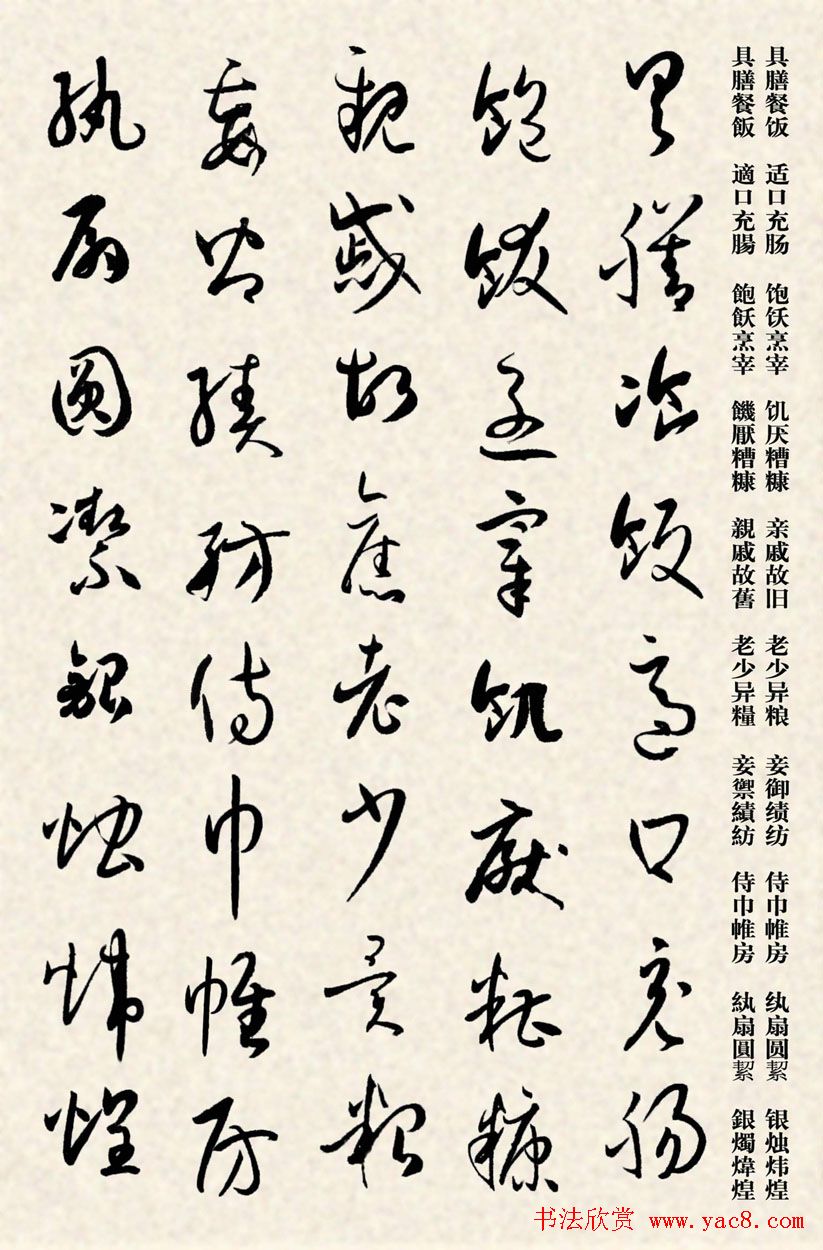 具膳餐饭 适口充肠 饱饫烹宰 饥厌糟糠 亲戚故旧 老少异粮 妾御绩纺 侍巾帷房 纨扇圆絜 银烛炜煌
具膳餐飯 適口充腸 飽飫烹宰 饑厭糟糠 親戚故舊 老少异糧 妾禦績紡 侍巾帷房 紈扇圓絜 銀燭煒煌
具膳飡飯適口充腸
飽飫烹宰飢厭糟糠
親戚故舊老少異糧
妾御績紡侍巾帷房
紈扇圓潔銀燭煒煌
书法欣赏 www.yac8.com